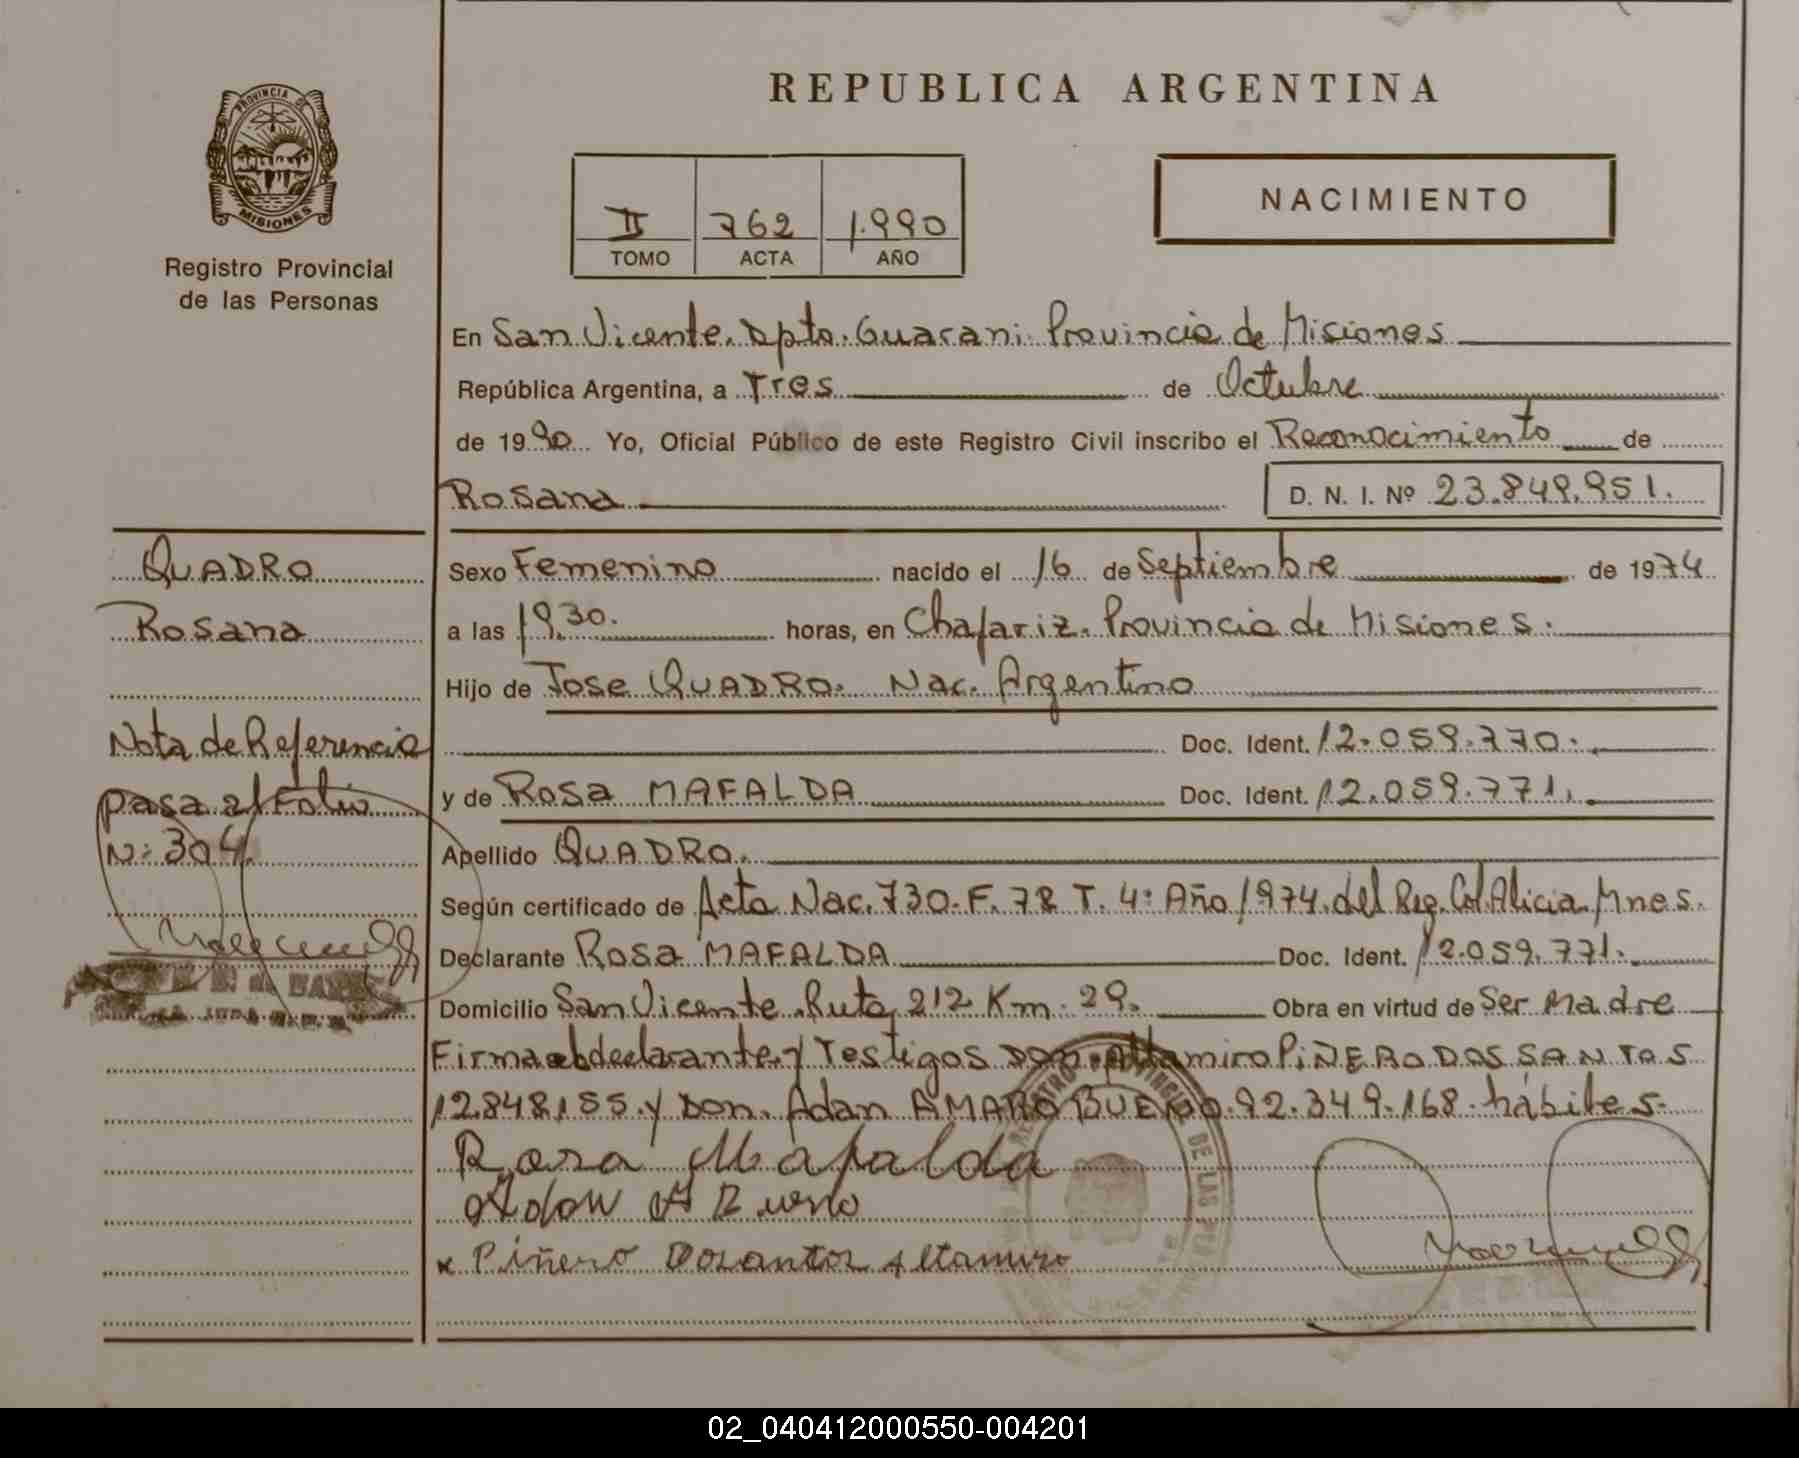 REPUBLICA ARGENTINA
PROVINCIA DE
MISIONES
Registro Provincial
de las Personas
II 762 1.990
TOMO ACTA AÑO
NACIMIENTO
En San Vicente. Dpto. Guarani. Provincia de Misiones
República Argentina, a Tres de Octubre
de 1990 Yo, Oficial Público de este Registro Civil inscribo el Reconocimiento de
Rosana D. N. I. Nº 23.849.951.
QUADRO
Rosana
Nota de Referencia
pasa al Folio
N: 304.
Sexo Femenino nacido el 16 de Septiembre de 1974
a las 19,30. horas, en Chafariz. Provincia de Misiones.
Hijo de Jose QUADRO. Nac. Argentino
Doc. Ident. 12.059.770.
y de Rosa MAFALDA Doc. Ident. 12.059.771.
Apellido QUADRO.
Según certificado de Acta Nac. 730. F. 78 T. 4: Año 1974. del Reg. Col. Alicia. Mnes.
Declarante Rosa MAFALDA Doc. Ident. 12.059.771.
Domicilio San Vicente. Ruta 212 Km. 29. Obra en virtud de Ser Madre
Firma el declarante y Testigos Don. Altamiro PIÑERO DOS SANTOS
12.848.155. y Don. Adan AMARO BUENO. 92.349.168. hábiles.
Rosa Mafalda
Adan A Bueno
x Piñero Dosantos Altamiro
02_040412000550-004201